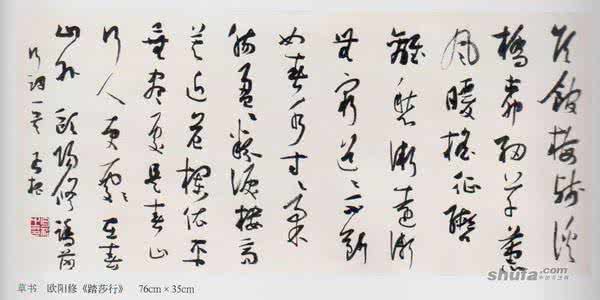 候館梅殘溪
橋柳細草薰
風暖搖征轡
離愁漸遠漸
無窮迢迢不斷
如春水寸寸柔
腸盈盈粉淚樓高
莫近危欄依平
蕪盡處是春山
行人更在春
山外 歐陽修踏莎
行詞一首
草书 欧阳修《踏莎行》 76cm×35cm
shufa.com